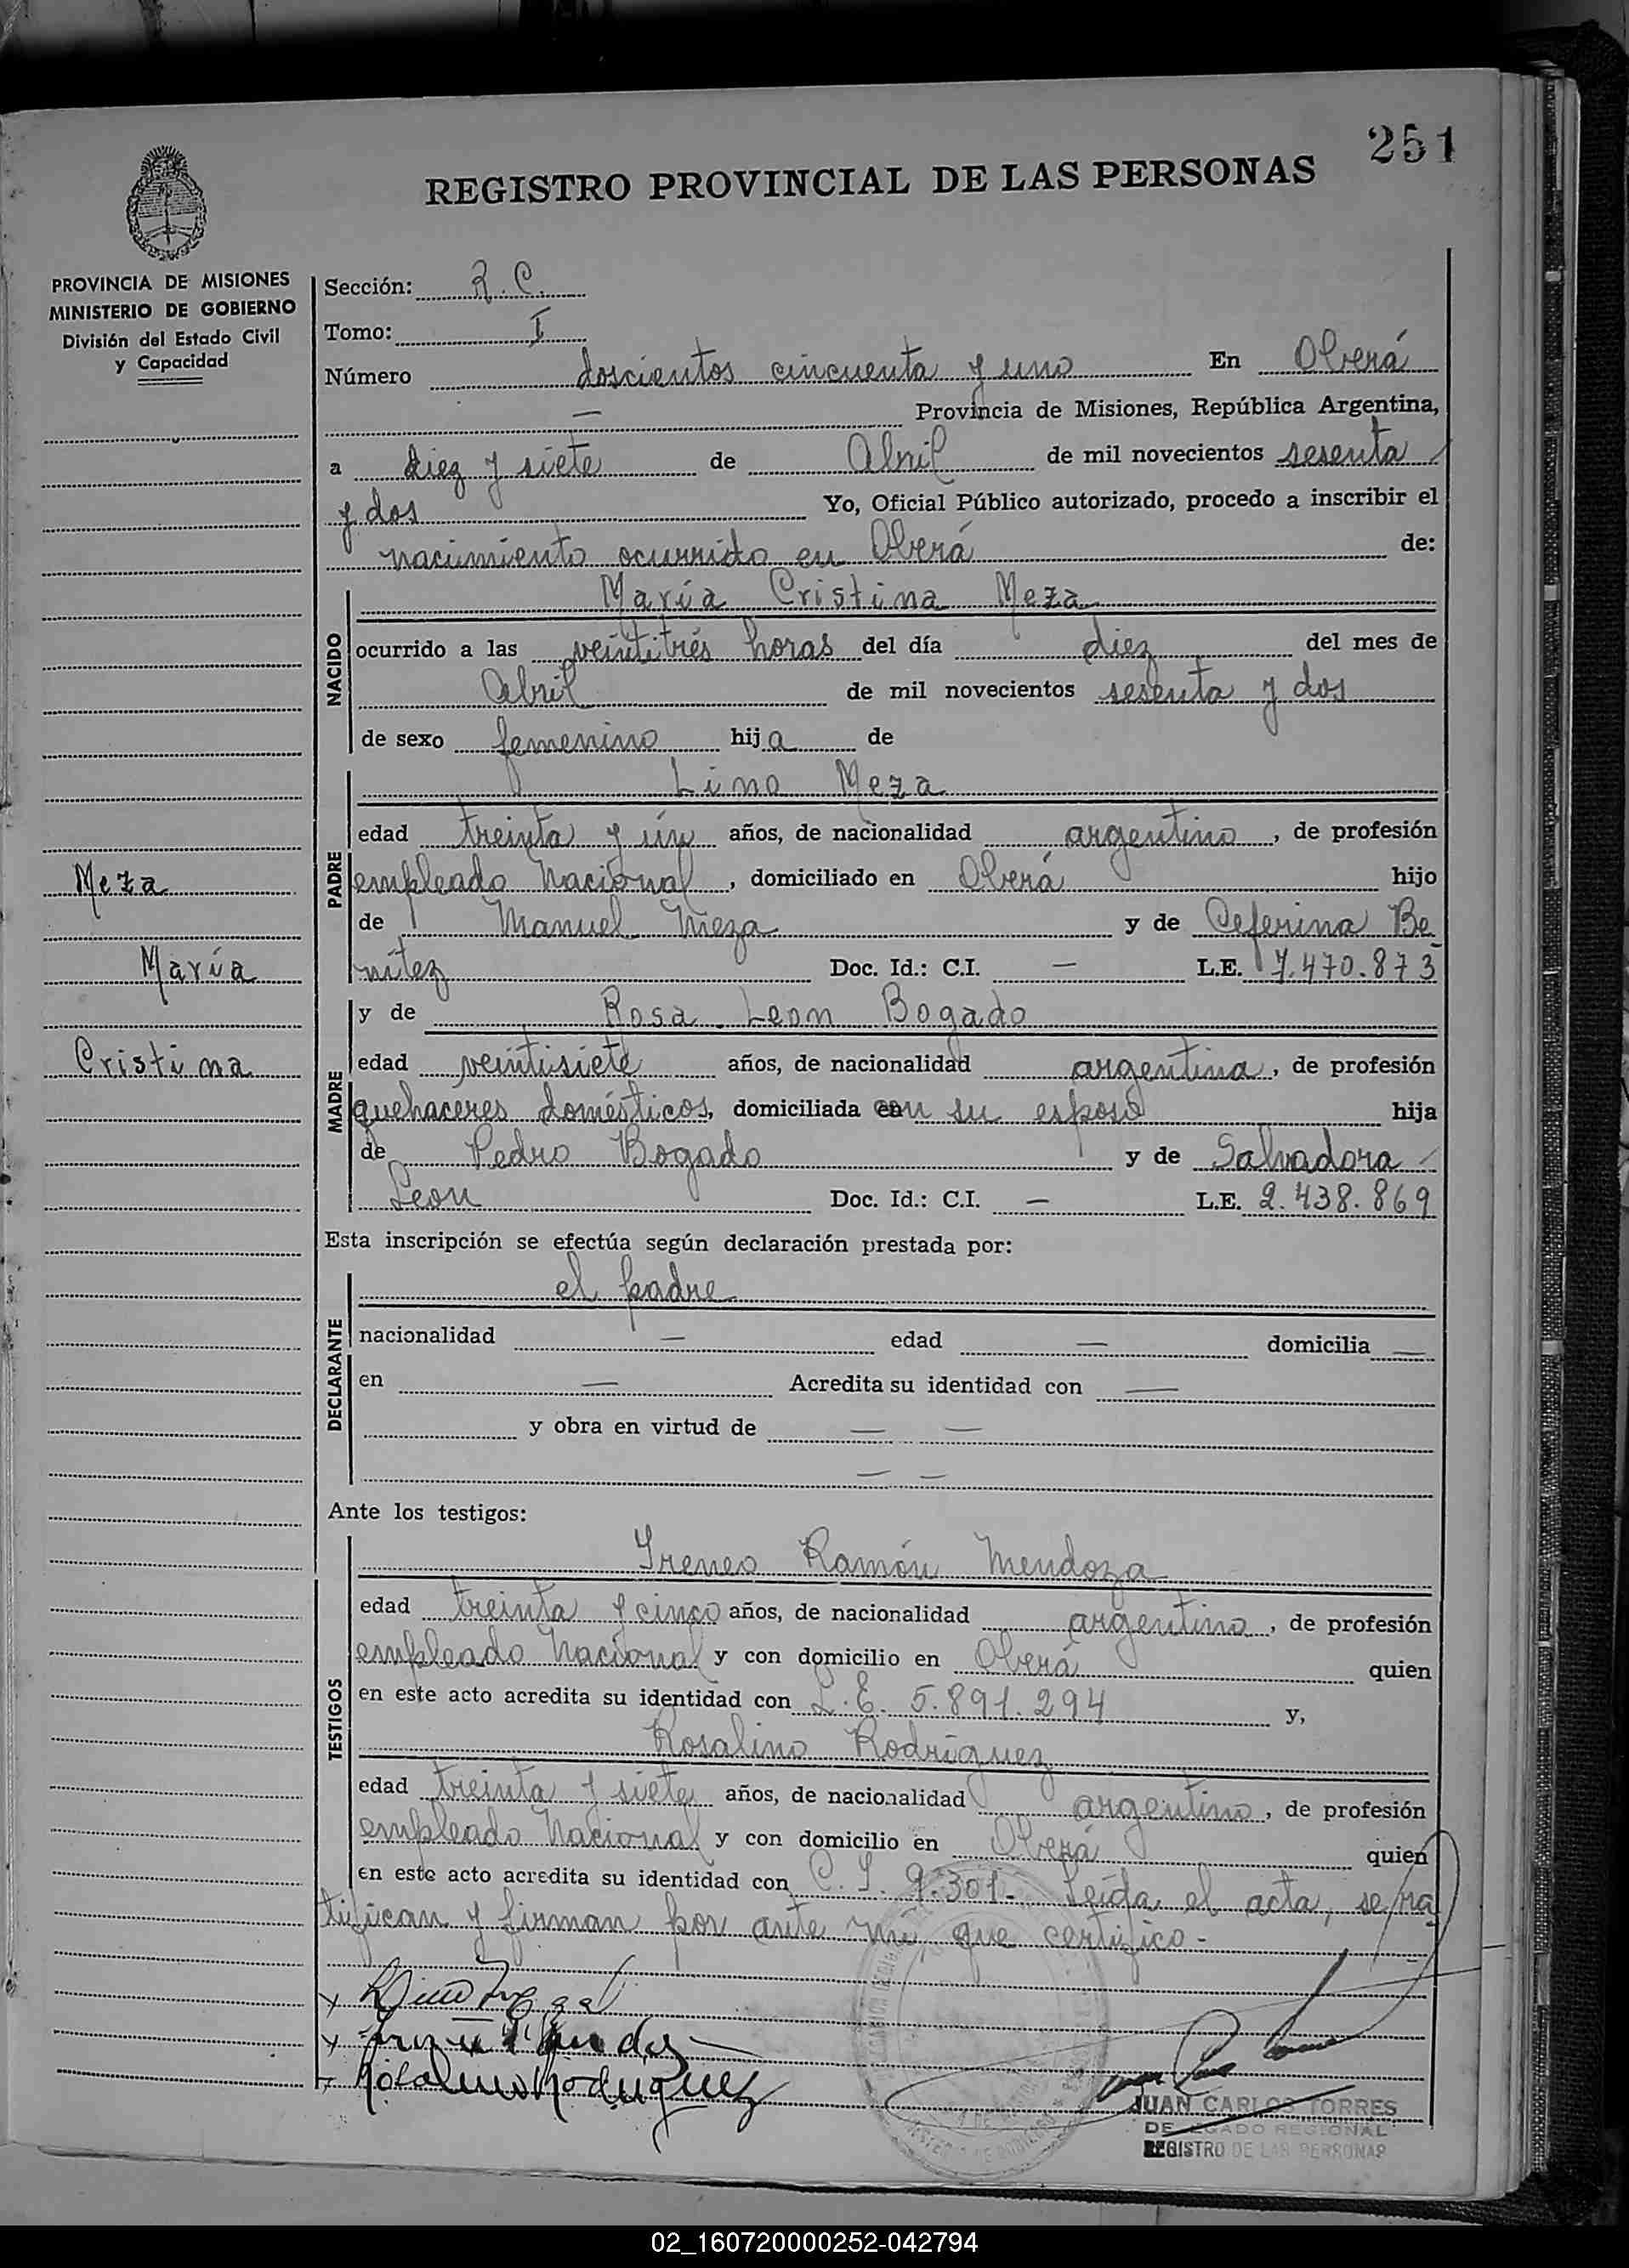 251
REGISTRO PROVINCIAL DE LAS PERSONAS
PROVINCIA DE MISIONES
MINISTERIO DE GOBIERNO
División del Estado Civil
y Capacidad
Meza
María
Cristina
Sección: R. C.
Tomo: I
Número doscientos cincuenta y uno En Oberá
— Provincia de Misiones, República Argentina,
a diez y siete de Abril de mil novecientos sesenta
y dos Yo, Oficial Público autorizado, procedo a inscribir el
nacimiento ocurrido en Oberá de:
NACIDO
María Cristina Meza
ocurrido a las veintitrés horas del día diez del mes de
Abril de mil novecientos sesenta y dos
de sexo femenino hija de
PADRE
Lino Meza
edad treinta y ún años, de nacionalidad argentino, de profesión
empleado Nacional, domiciliado en Oberá hijo
de Manuel Meza y de Ceferina Be
nítez Doc. Id.: C.I. — L.E. 7.470.873
MADRE
y de Rosa Leon Bogado
edad veintisiete años, de nacionalidad argentina, de profesión
quehaceres domésticos, domiciliada con su esposo hija
de Pedro Bogado y de Salvadora
Leon Doc. Id.: C.I. — L.E. 2.438.869
Esta inscripción se efectúa según declaración prestada por:
DECLARANTE
el padre
nacionalidad — edad — domicilia —
en — Acredita su identidad con —
y obra en virtud de — —
— —
Ante los testigos:
TESTIGOS
Ireneo Ramón Mendoza
edad treinta y cinco años, de nacionalidad argentino, de profesión
empleado Nacional y con domicilio en Oberá quien
en este acto acredita su identidad con L. E. 5.891.294 y,
Rosalino Rodríguez
edad treinta y siete años, de nacionalidad argentino, de profesión
empleado Nacional y con domicilio en Oberá quien
en este acto acredita su identidad con C. I. 9.301.- Leída el acta, se ra
tifican y firman por ante mí que certifico.-
Lino Meza
Rosalino Rodriguez
JUAN CARLOS TORRES
DELEGADO REGIONAL
REGISTRO DE LAS PERSONAS
02_160720000252-042794